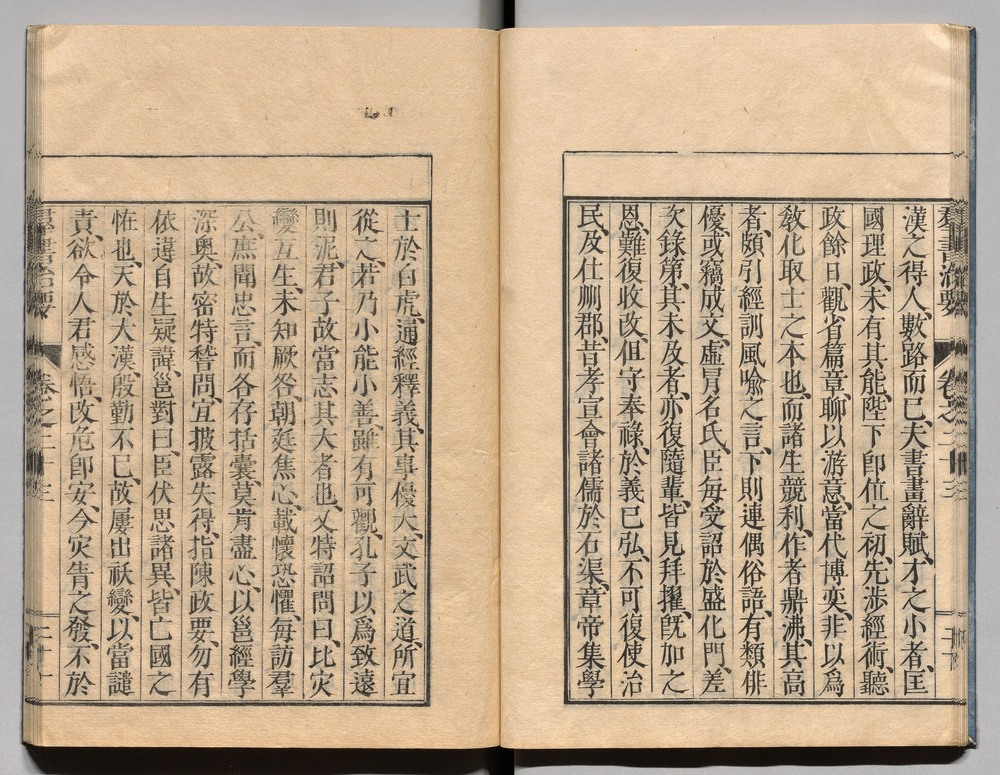 漢之得人、數路而已、夫書畫辭賦、才之小者、匡
國理政、未有其能、陛下卽位之初、先涉經術、聽
政餘日、觀省篇章、聊以游意、當代博奕、非以爲
敎化取士之本也、而諸生競利、作者鼎沸、其高
者、頗引經訓風喩之言、下則連偶俗語、有類俳
優、或竊成文、虛冒名氏、臣每受詔於盛化門、差
次錄第、其未及者、亦復隨輩、皆見拜擢、旣加之
恩、難復收改、但守奉祿、於義已弘、不可復使治
民、及仕州郡、昔孝宣會諸儒於石渠、章帝集學
士於白虎、通經釋義、其事優大、文武之道、所宜
從之、若乃小能小善、雖有可觀、孔子以爲致遠
則泥、君子故當志其大者也、又特詔問曰、比灾
變互生、未知厥咎、朝廷焦心、載懷恐懼、每訪羣
公、庶聞忠言、而各存括囊、莫肯盡心、以邕經學
深奥、故密特稽問、宜披露失得、指陳政要、勿有
依違自生疑諱、邕對曰、臣伏思諸異、皆亡國之
恠也、天於大漢殷勤不已、故屢出祅變、以當譴
責、欲令人君感悟、改危卽安、今灾眚之發、不於
羣書治要
卷之二十三